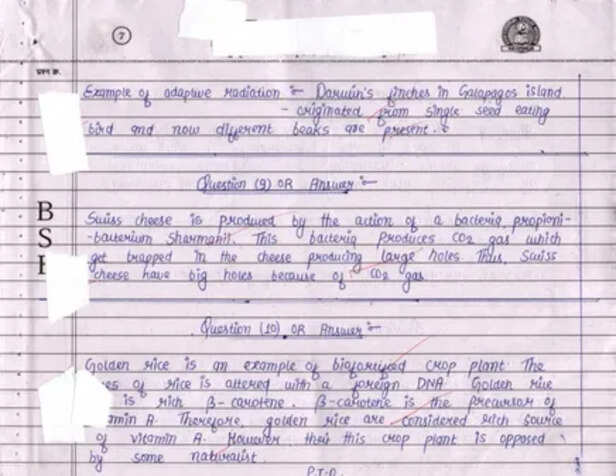 7
प्रश्न क्र.
Example of adaptive radiation :- Darwin's finches in Galapagos island
- originated from single seed eating
bird and now different beaks are present.
Question (9) OR Answer :-
B
S
Swiss cheese is produced by the action of a bacteria, propioni-
-bacterium Sharmanii. This bacteria produces CO2 gas which
get trapped in the cheese producing large holes. Thus, Swiss
cheese have big holes because of CO2 gas.
Question (10) OR Answer :-
Golden rice is an example of biofortified crop plant. The
of rice is altered with a foreign DNA. Golden rice
is rich β-carotene. β-carotene is the precursor of
Therefore, golden rice are considered rich source
of vitamin A. However this crop plant is opposed
by some naturalist.
P.T.O.